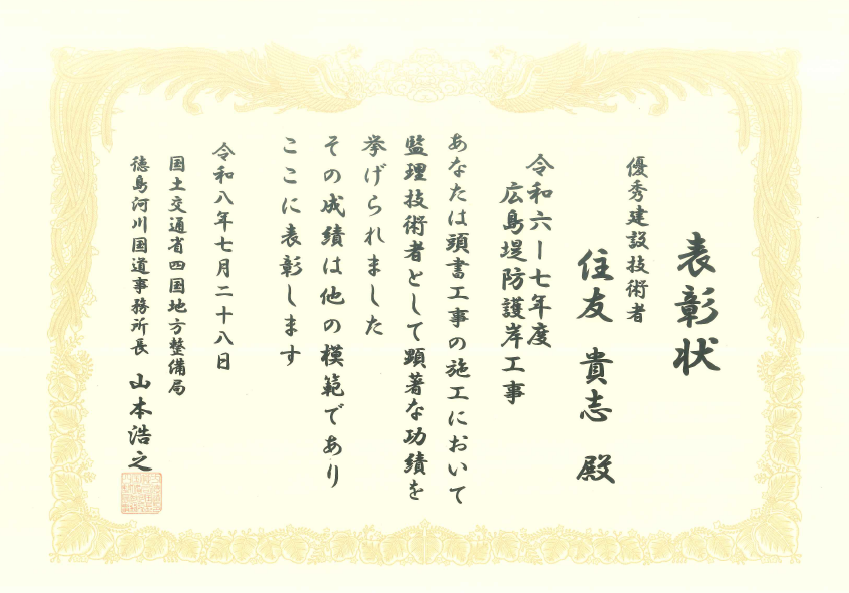 表彰状
優秀建設技術者
住友 貴志 殿
令和六ー七年度
広島堤防護岸工事
あなたは頭書工事の施工において
監理技術者として顕著な功績を
挙げられました
その成績は他の模範であり
ここに表彰します
令和八年七月二十八日
国土交通省四国地方整備局
徳島河川国道事務所長 山本浩之